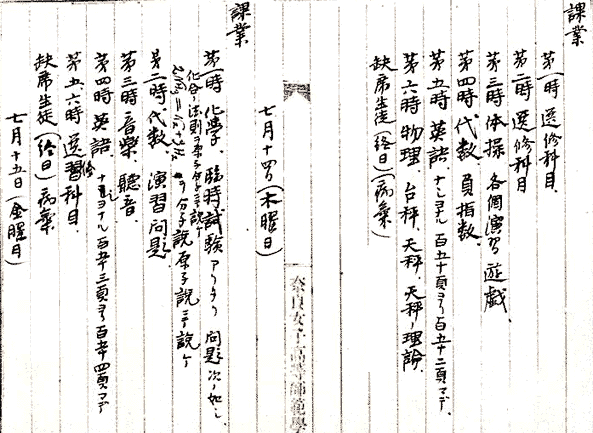 課業
第一時 選修科目.
第二時 選修科目
第三時 体操 各個演習 遊戯.
第四時 代数 負指数.
第五時 英語. ナショナル 百五十頁ヨリ百五十二頁マデ.
第六時 物理. 台秤. 天秤. 天秤ノ理論.
缺席生徒(終日)(病氣)
七月十四日(木曜日)
奈良女子高等師範學
課業
第一時 化学. 臨時試験 アリタリ 問題次ノ如シ.
化合ノ法則ヲ原子分子説ニテ説ケ
ヲ分子説原子説ニテ説ケ
第二時. 代数. 演習問題
第三時 音楽. 聽音.
第四時 英語. ナショナル 百五十三頁ヨリ百五十四頁マデ
第五、六時 選修科目.
缺席生徒(終日) 病氣
七月十五日(金曜日)